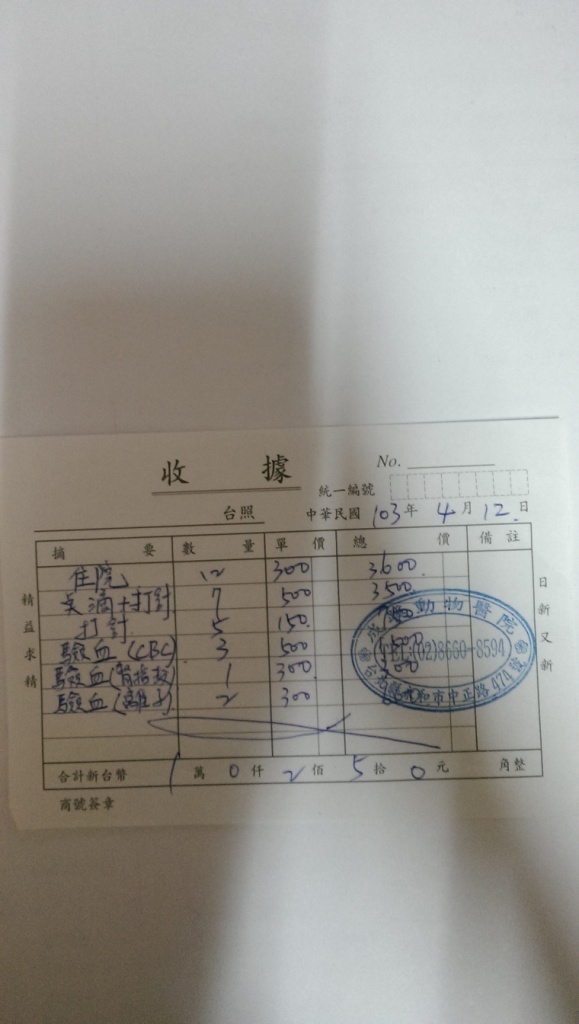 收 據
No.
統一編號
台照
中華民國 103 年 4 月 12 日
摘 要 數 量 單 價 總 價 備 註
住院 12 300 3600
点滴+打針 7 500 3500
打針 5 150 750
驗血(CBC) 3 500 1500
驗血(腎指数) 1 300 300
驗血(離子) 2 300
合計新台幣 1 萬 0 仟 2 佰 5 拾 0 元 角整
商號簽章
精益求精
日新又新
動物醫院
(02)8660-8594
和市中正路474號